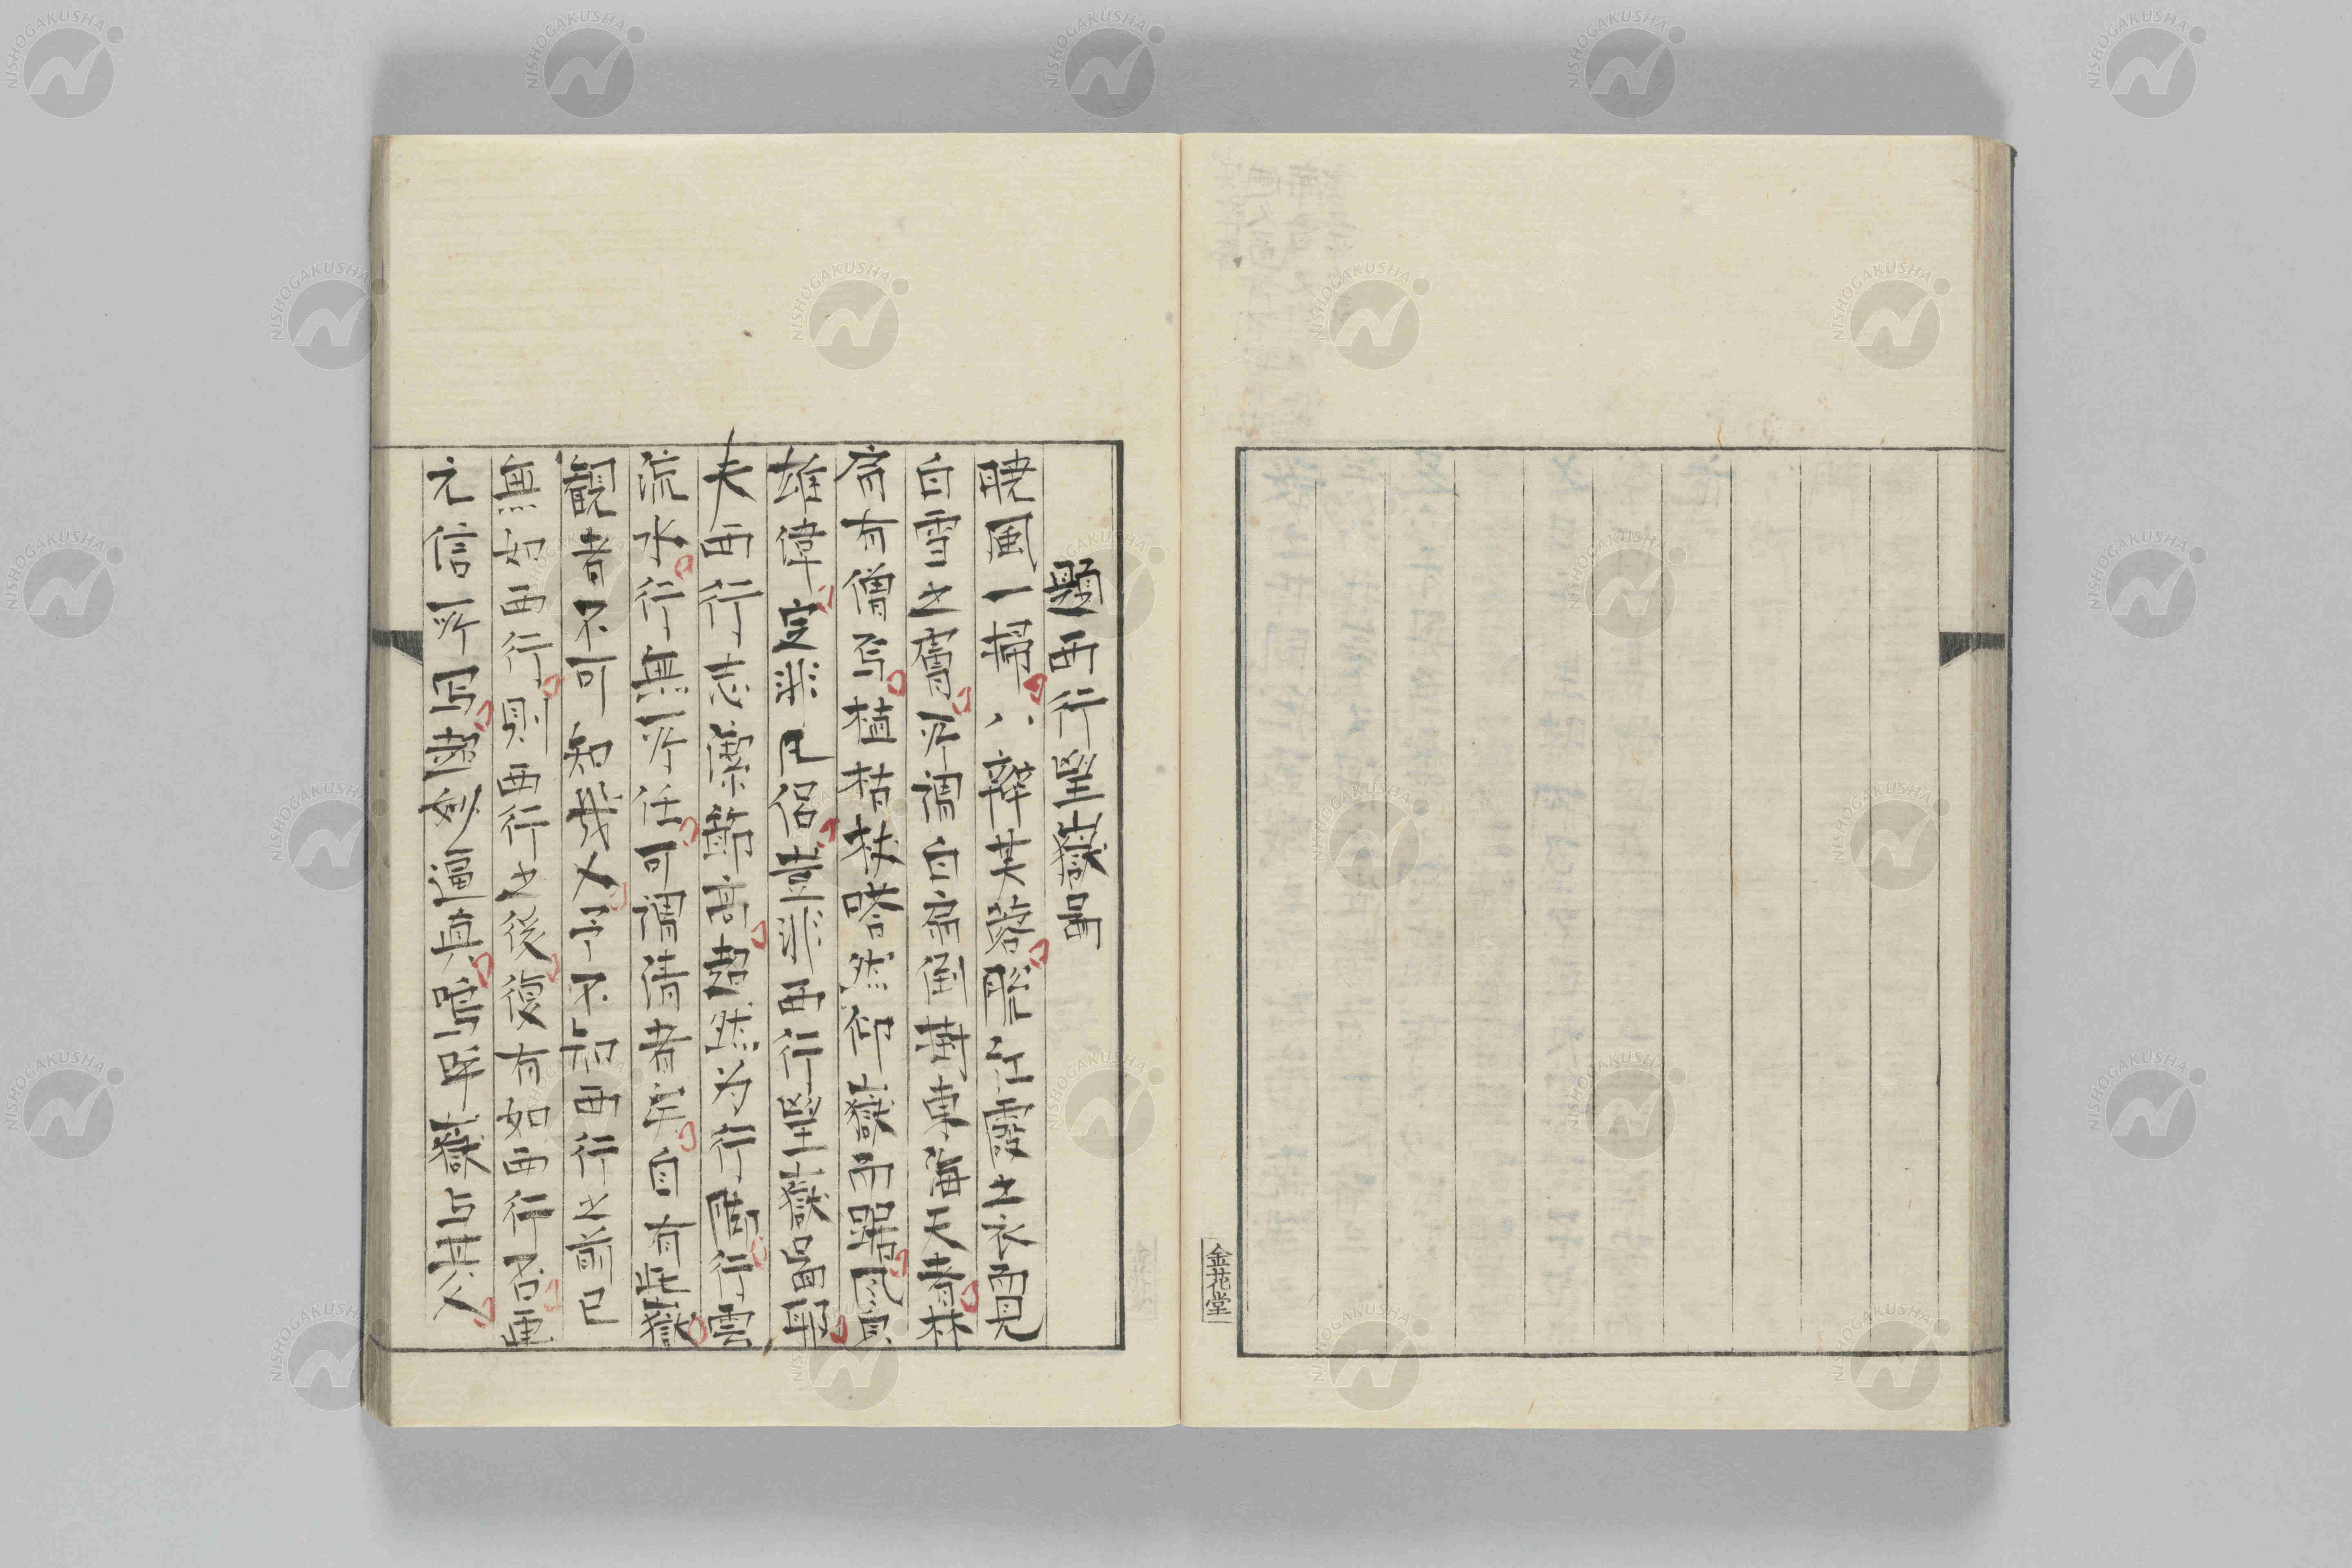 題西行望嶽啚
暁風一掃八辯芙蓉脱江霞之衣而見
白雪之膚所謂白帝倒冓東海天者林
有僧焉植枯杖嗒然仰嶽而踞風皃
雄偉定非凡侶豈非西行望嶽啚耶
夫西行志潔節高超然为行脚行雲
流水行無所住可謂倩者矣自有此嶽
觀者不可知幾人予不知西行之前已
無如西行則西行之後復有如西行否画
元信所写肅妙逼真嗚呼嶽与其人
金花堂